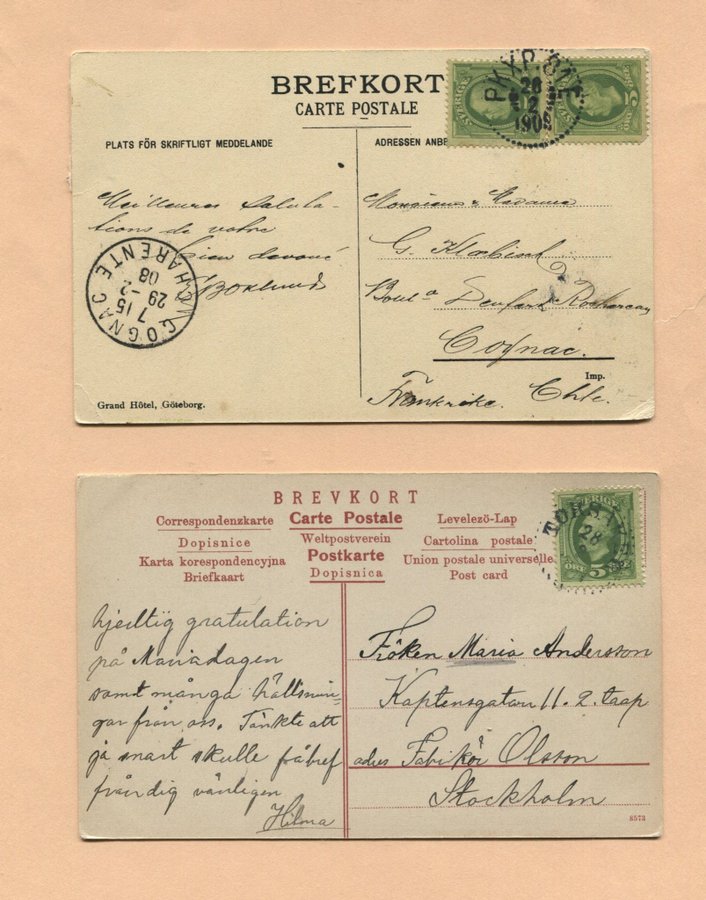 BREFKORT
CARTE POSTALE
PLATS FÖR SKRIFTLIGT MEDDELANDE
ADRESSEN ANBE
PKXP.
26
2
190
SVERIGE
ÖRE
Meilleures Saluta-
tions de votre
bien devoué
Boklund
COGNAC CHARENTE
7 15
29 - 2
08
Monsieur & Madame
G.
Boul. Denfert Rochereau
Cognac.
Imp.
Frankrike. Chte.
Grand Hôtel, Göteborg.
BREVKORT
Correspondenzkarte Carte Postale Levelezö-Lap
Dopisnice Weltpostverein Cartolina postale
Karta korespondencyjna Postkarte Union postale universelle
Briefkaart Dopisnica Post card
SVERIGE
28
ÖRE 5
hjertlig gratulation
på Mariadagen
samt många hälsnin-
gar från oss. Tänkte att
ja snart skulle få bref
från dig vänligen
Hilma
Fröken Maria Andersson
Kaptensgatan 11. 2. trap
adrs Fabikör Olsson
Stockholm
8573